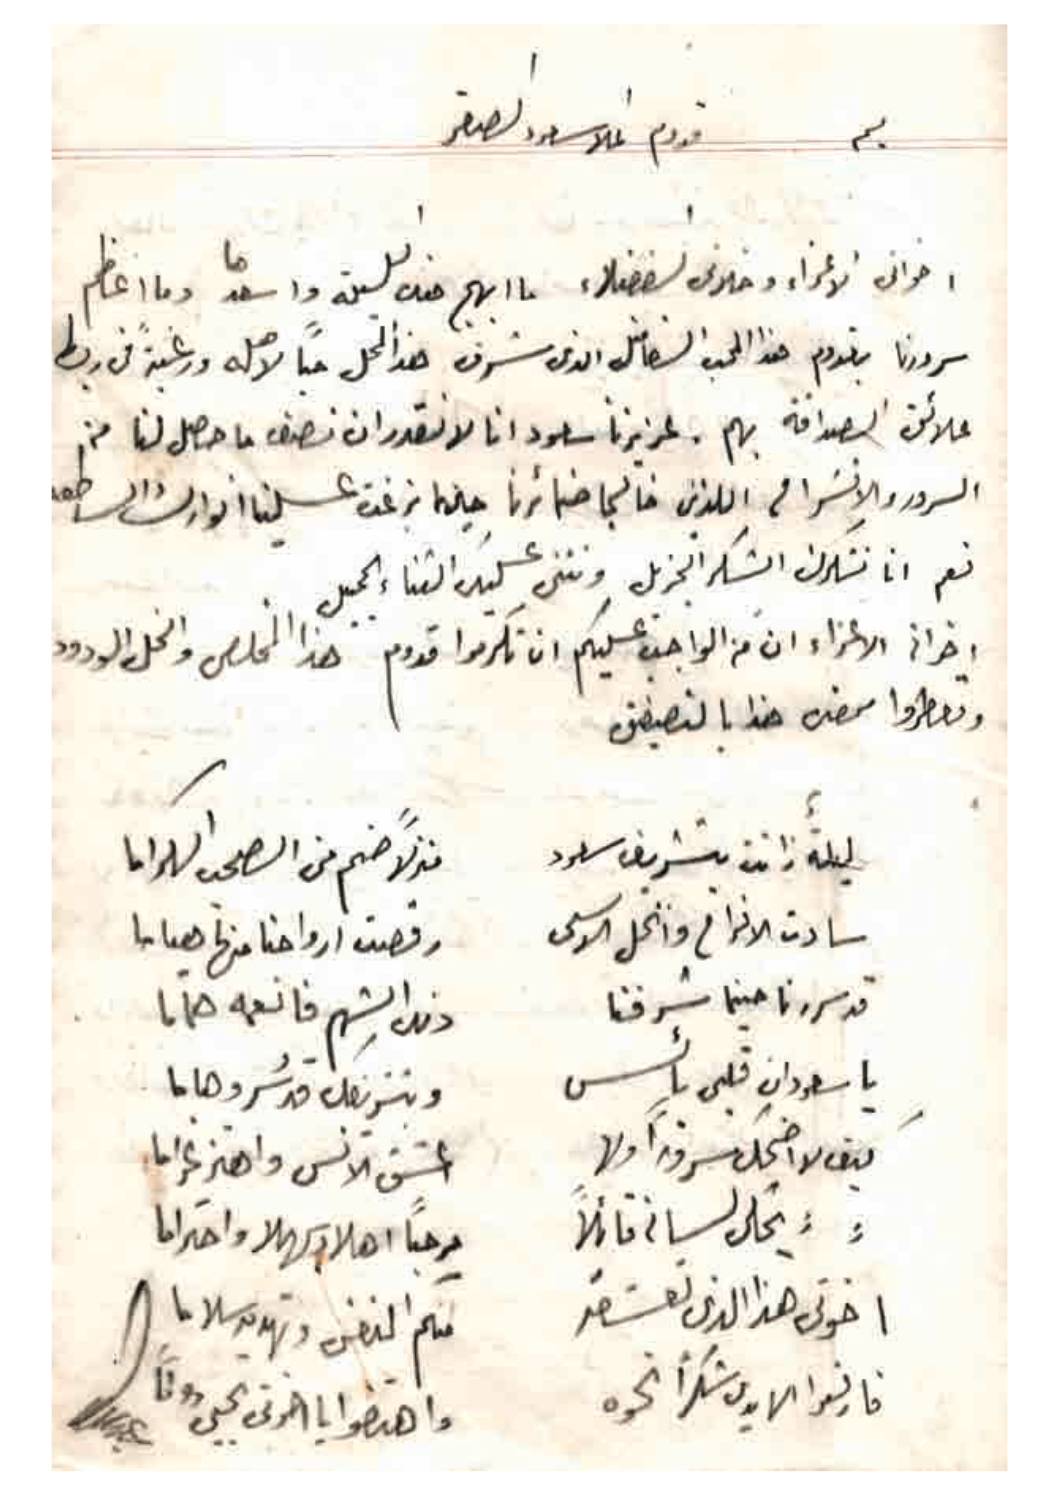 بسم قدوم الملا سعود الصقر
اخواني الاعزاء وخلاني الفضلاء ما ابهج هذه الليلة وما اسعدها وما اعظم
سرورنا بقدوم هذا المحب الفاضل الذي شرف هذا المحل حباً لاهله ورغبةً في ربط
علائق الصداقة بهم . عزيزنا سعود انا لا نقدر ان نصف ما حصل لنا من
السرور والانشراح اللذين خالجا ضمائرنا حينما بزغت علينا انوارك الساطعة
نعم انا نشكرك الشكر الجزيل ونثني عليك الثناء الجميل
اخواني الاعزاء ان من الواجب عليكم ان تكرموا قدوم هذا المخلص والخل الودود
هذا بالتصفيق
ليلةٌ زانت بتشريف سعود منزلاً ضم من الصحب الكراما
سادت الافراح وانحل الاسى رقصت ارواحنا فيها هياما
قد سررنا حينما شرفنا ذلك الشهم فانعم هماما
يا سعود ان قلبي بائس وبتشريفك قد سُر وهاما
كيف لا اضحك مسروراً ولها عشق الانس واهتز غراما
〃 〃 يحكي لساني قائلاً مرحباً اهلا وسهلا واحتراما
اخوتي هذا الذي منكم النفس وتهديه سلاما
فارفعوا الايدي شكراً نحوه واهتفوا يا اخوتي يحيى دوماً